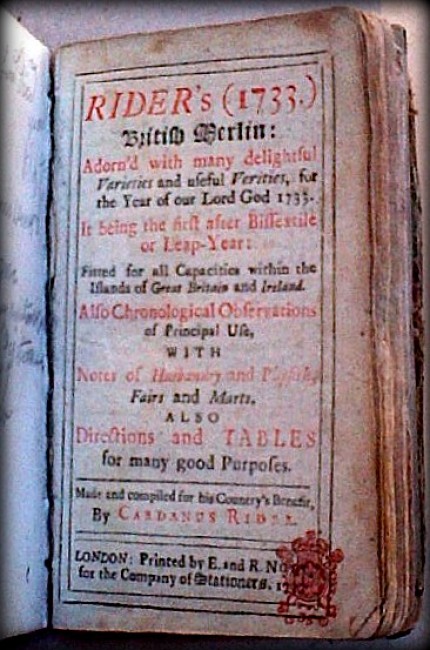 RIDER's (1733.)
Britiſh Merlin:
Adorn'd with many delightful
Varieties and uſeful Verities, for
the Year of our Lord God 1733.
It being the firſt after Biſſextile
or Leap-Year:
Fitted for all Capacities within the
Iſlands of Great Britain and Ireland.
Alſo Chronological Obſervations
of Principal Uſe,
WITH
Notes of Husbandry and
Fairs and Marts.
ALSO
Directions and TABLES
for many good Purpoſes.
Made and compiled for his Country's Benefit,
By CARDANUS RIDER.
LONDON: Printed by E. and R.
for the Company of Stationers.